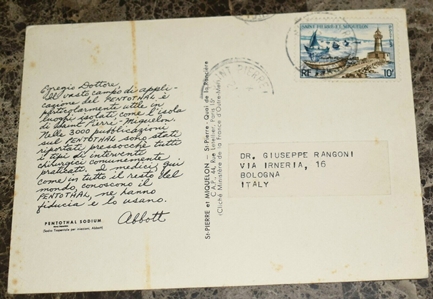 Egregio Dottore,
Il vasto campo di appli-
cazione del PENTOTHAL è
particolarmente utile in
luoghi isolati come l'isola
di Saint Pierre-Miquelon.
Nelle 3000 pubblicazioni
sul PENTOTHAL sono stati
riportati pressochè tutto
il tipi di interventi
chirurgici comunemente
praticati. I medici qui
come in tutto il resto del
mondo, conoscono il
PENTOTHAL, ne hanno
fiducia e lo usano.
Abbott
PENTOTHAL SODIUM
ST-PIERRE et MIQUELON — St-Pierre - Quai de la Roncière
(Cliché Ministère de la France d'Outre-Mer)
SAINT PIERRE & MIQUELON
RF
10F
DR. GIUSEPPE RANGONI
VIA IRNERIA, 16
BOLOGNA
ITALY